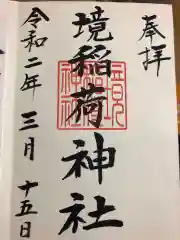 奉拝
境稲荷神社
令和二年三月十五日